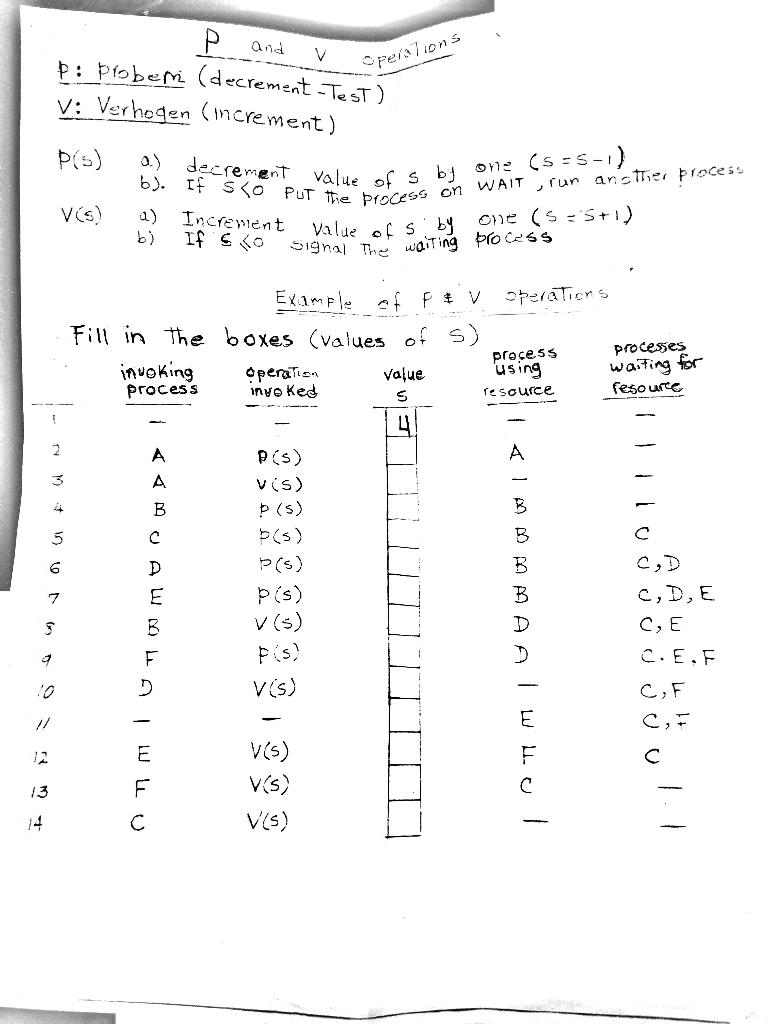 P and V operations
P: Probern (decrement-Test)
V: Verhogen (increment)
P(s) a.) decrement value of s by one (s=s-1)
b). If s<0 PUT the process on WAIT, run another process
V(s) a) Increment value of s by one (s=s+1)
b) If s<0 signal the waiting process
Example of P & V operations
Fill in the boxes (values of s)
invoking process operation invoked value s process using resource processes waiting for resource
1 — — 4 — —
2 A P(s) A —
3 A V(s) — —
4 B P(s) B —
5 C P(s) B C
6 D P(s) B C,D
7 E P(s) B C,D,E
8 B V(s) D C,E
9 F P(s) D C.E.F
10 D V(s) — C,F
11 — — E C,F
12 E V(s) F C
13 F V(s) C —
14 C V(s) — —